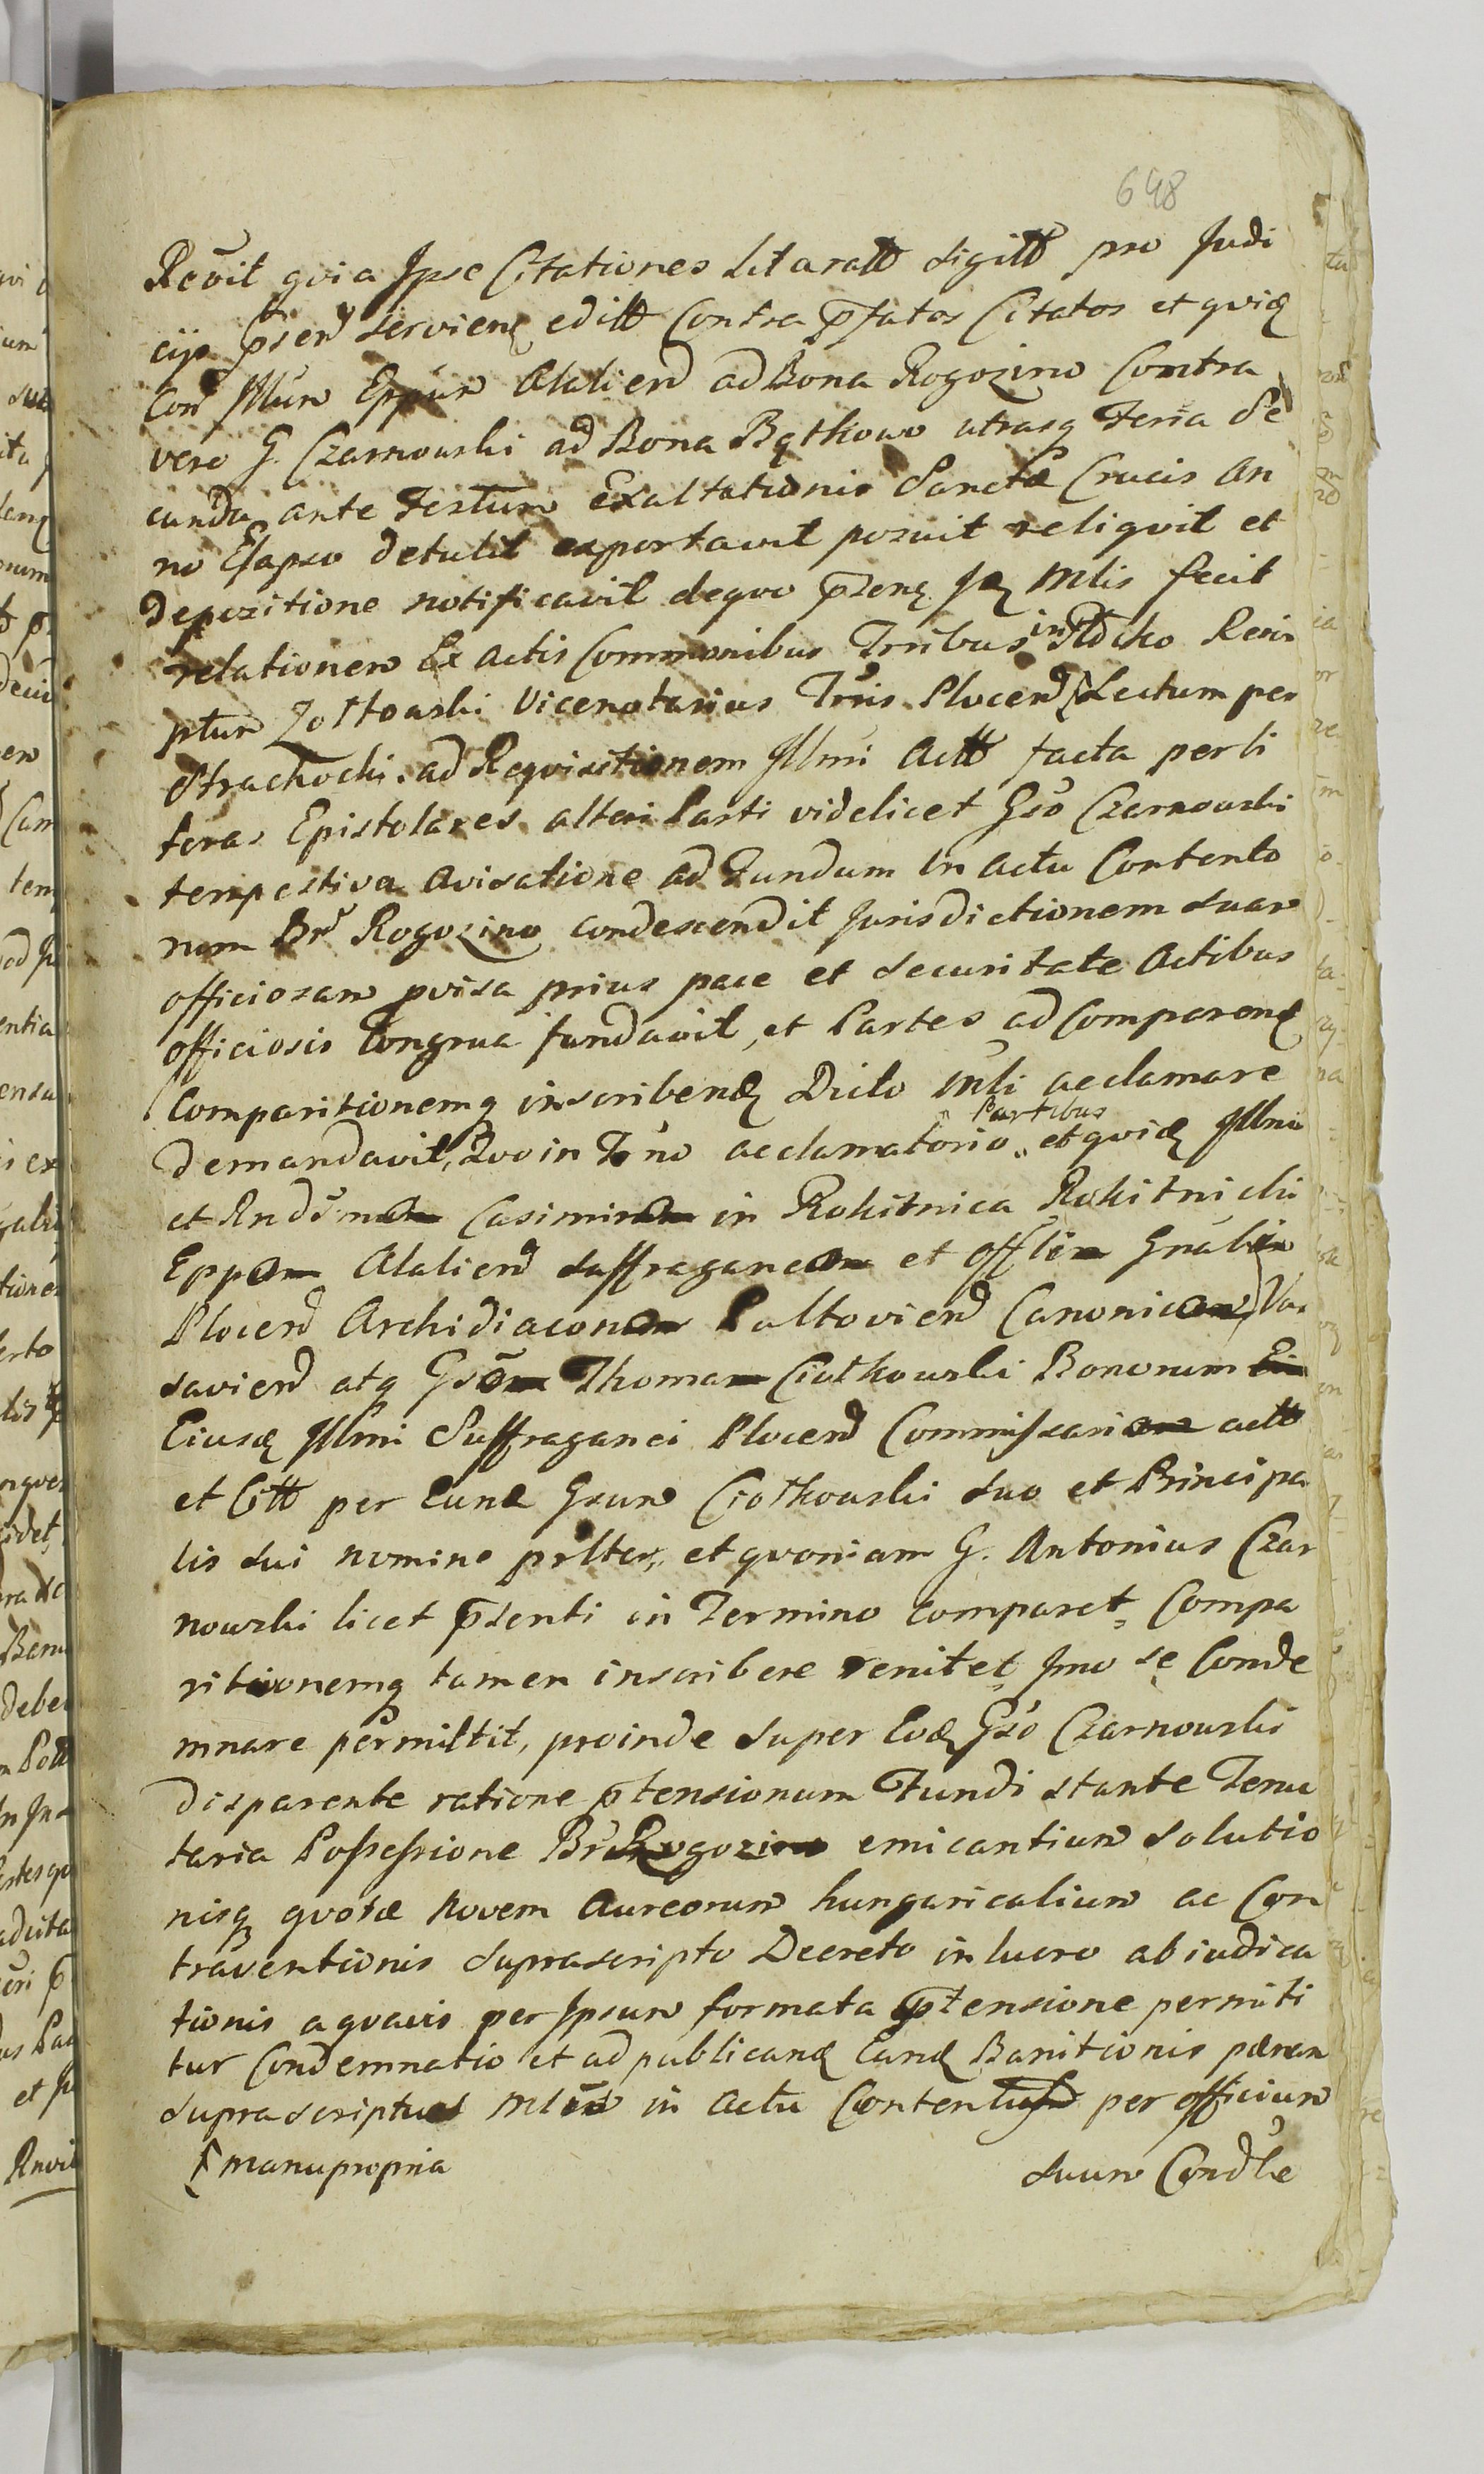 648
Recōit qvia Ipse Citationes Lit aratt sigitt pro Judi
cijs pr̄sen serviens editt Contra p̄fatos Citatos et qvid
Con Illūm Eppūm Alalien ad Bona Rogozino Contra
vero G. Czarnowski ad Bona Bątkowo utrasq Feria Se
cunda ante Festum Exaltationis Sanctæ Crucis An
no Elapso detulit exportavit posuit reliqvit et
Depozitione notificavit deqvo p̄sens Id Mlis fecit
relationem Ex Actis Communibus Trribus in
ptum Zółtowski Vicenotarius Trris Plocen Lectum per
Strachocki. ad Reqvisitionem Illmi Actt facta per li
teras Epistolares alteri Parti videlicet Gso Czarnowski
tempestiva Avisatione ad Fundum in Actu Contento
rum Br Rogozino condescendit Jurisdictionem suam
officiosam pvisa prius pace et securitate Actibus
officiosis Congrua fundavit, et Partes ad Comparend
Comparitionemq inscribend Dicto Mli acclamare
Partibus
demandavit, Qvo in Tno acclamatorio et qvid Illmo
et Rndsmo Casimiro in Rokitnica Rokitnicki
Eppo Alalien Suffraganeo et Offli Gnali
Plocen Archidiacono Pultovien Canonico Var
savien atq Gso Thoma Ciotkowski Bonorum
Eiusd Illmi Suffraganei Plocen Commissario actt
et Citt per Eund Gsum Ciotkowski suo et Principa
lis sui nomine prlter, et qvoniam G. Antonius Czar
nowski licet p̄senti in Termino comparet, Compa
ritionemq tamen inscribere renitet Imo se Conde
mnare permittit, proinde super Eod Gso Czarnowski
disparente ratione p̄tensionum Fundi stante Tenu
taria Possessione Br Rogozino emicantium solutio
nisq qvotæ Novem Aureorum hungaricalium ac Con
traventionis suprascripto Decreto in lucro abiudica
tionis aqvavis per Ipsum formata p̄tensione permiti
tur Condemnatio et ad publicand Eand Banitionis pænam
suprascriptus Mlis in Actu Content per officium
manupropria suum Condle